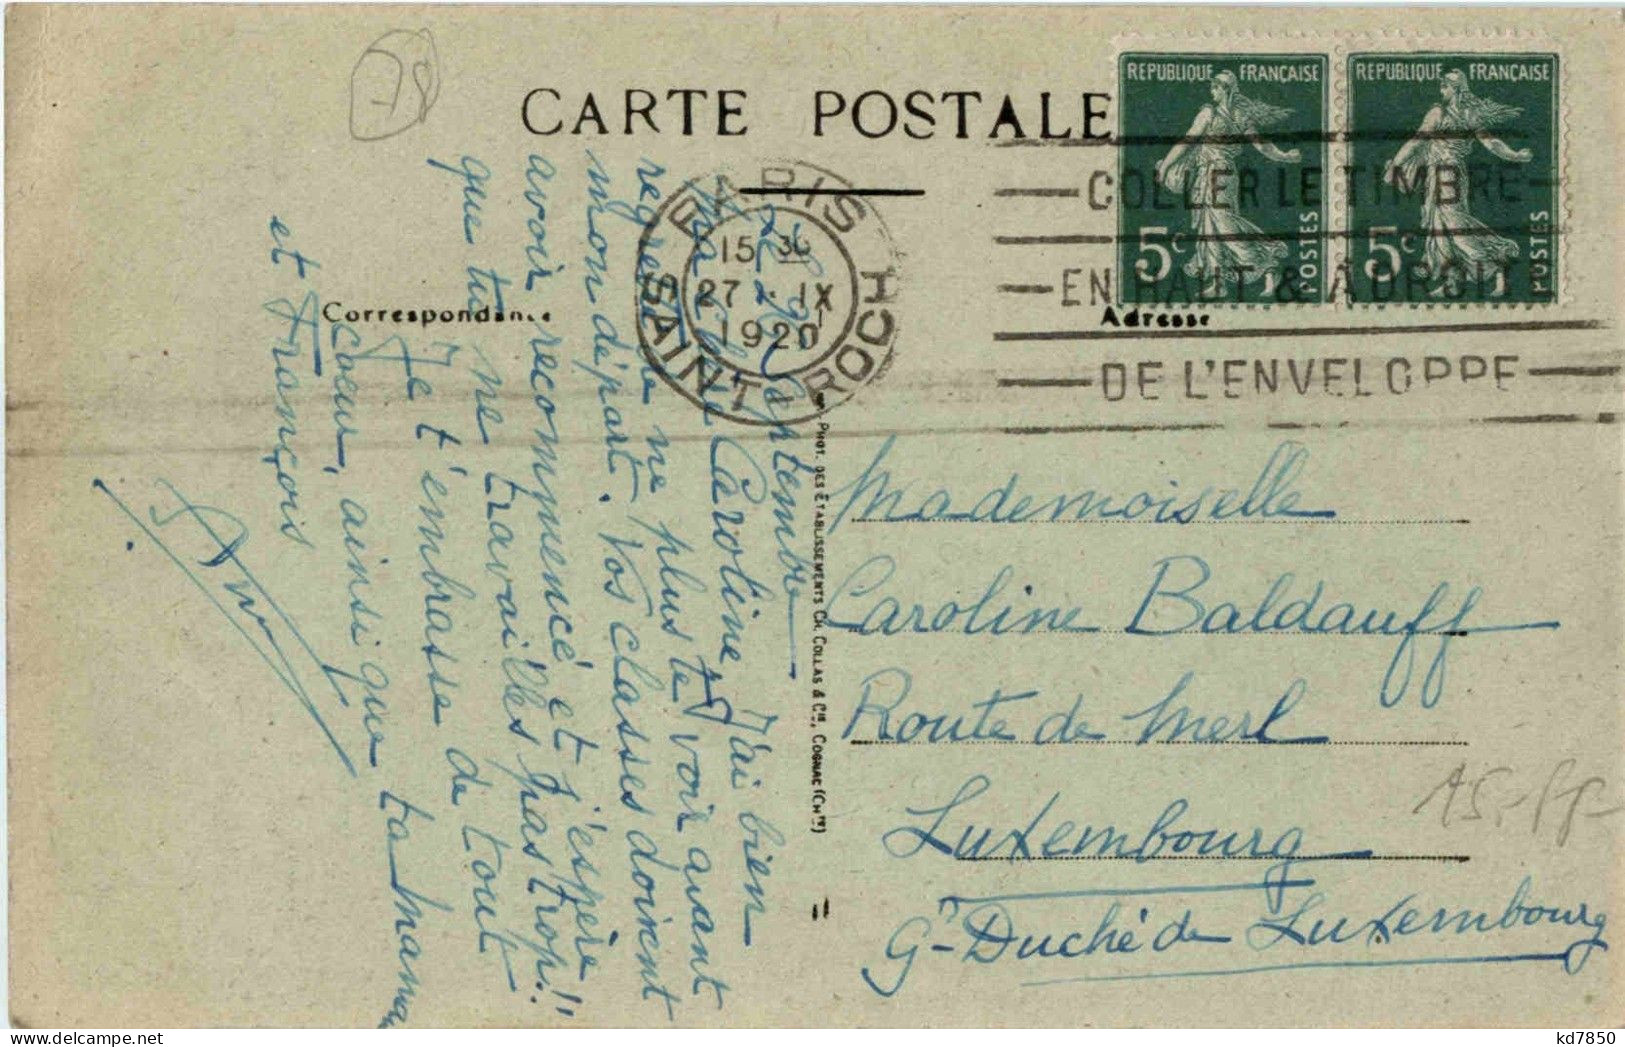 CARTE POSTALE
REPUBLIQUE FRANÇAISE
5c
POSTES
REPUBLIQUE FRANÇAISE
5c
POSTES
PARIS
15 30
27 · IX
1920
SAINT ROCH
COLLER LE TIMBRE
EN HAUT & A DROITE
DE L'ENVELOPPE
Correspondance
Adresse
Le 27 Septembre
Ma chère Caroline, J'ai bien
regretté de ne plus te voir avant
mon départ. Vos classes doivent
avoir recommencé et j'espère
que tu ne travailles pas trop!!
Je t'embrasse de tout
coeur, ainsi que ta maman
et François
PHOT. DES ÉTABLISSEMENTS CH. COLLAS & Cie, COGNAC (Chte)
Mademoiselle
Caroline Baldauff
Route de Merl
Luxembourg
Gd Duché de Luxembourg
kd7850